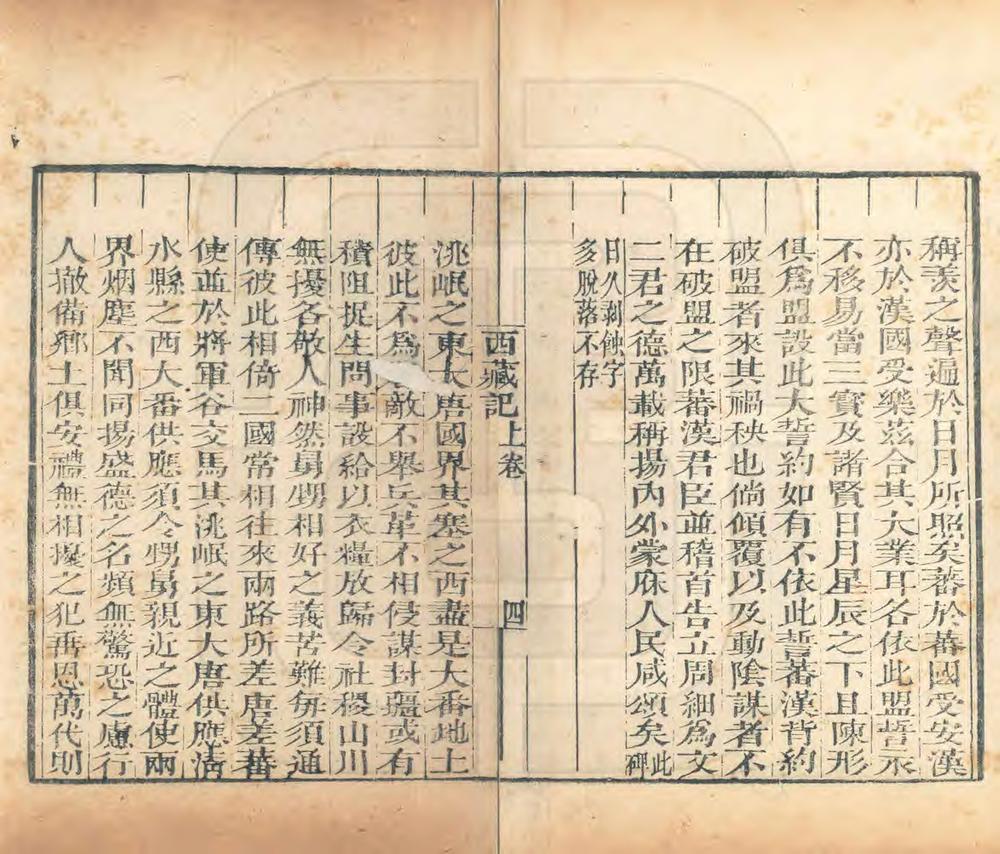 稱羡之聲遍於日月所照矣蕃於蕃國受安漢
亦於漢國受樂茲合其大業耳各依此盟誓永
不移易當三寶及諸賢日月星辰之下且陳形
俱爲盟設此大誓約如有不依此誓蕃漢背約
破盟者來其禍秧也倘傾覆以及動陰謀者不
在破盟之限蕃漢君臣並稽首告立周細爲文
二君之德萬載稱揚內外蒙庥人民咸頌矣此碑
日久剥蝕字
多脫落不存
西藏記上卷 四
洮岷之東大唐國界其塞之西盡是大番地土
彼此不爲敵不舉兵革不相侵謀封疆或有
積阻捉生問事設給以衣糧放歸令社稷山川
無擾各敬人神然舅甥相好之義苦難每須通
傳彼此相倚二國常相往來兩路所差唐差蕃
使並於將軍谷交馬其洮岷之東大唐供應清
水縣之西大番供應須令甥舅親近之體使兩
界烟塵不聞同揚盛德之名頻無驚恐之慮行
人撤備鄉土俱安禮無相擾之犯垂恩萬代則